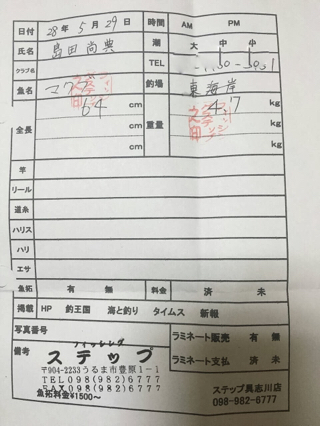 日付 28年 5月 29日 時間 AM PM
氏名 島田尚典 潮 大 中 中
クラブ名 TEL
魚名 マクブ 釣場 東海岸
全長 64 cm 重量 4.7 kg
cm kg
cm kg
竿
リール
道糸
ハリス
ハリ
エサ
魚拓 有 無 料金 済 未
掲載 HP 釣王国 海と釣り タイムス 新報
写真番号 ラミネート販売 有 無
備考 フィッシング ラミネート支払 済 未
ステップ
〒904-2233うるま市豊原1-1
TEL098(982)6777 ステップ具志川店
FAX098(982)6777 098-982-6777
魚拓料金¥1500~